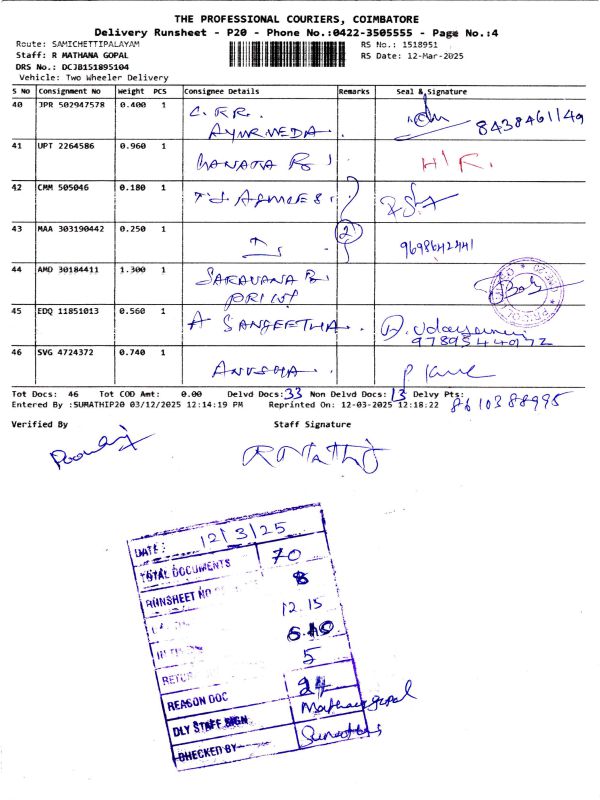 THE PROFESSIONAL COURIERS, COIMBATORE
Delivery Runsheet - P20 - Phone No.:0422-3505555 - Page No.:4
Route: SAMICHETTIPALAYAM RS No.: 1518951
Staff: R MATHANA GOPAL RS Date: 12-Mar-2025
DRS No.: DCJB151895104
Vehicle: Two Wheeler Delivery
S No Consignment No Weight PCS Consignee Details Remarks Seal & Signature
40 JPR 502947578 0.400 1 AYURVEDA 8438461149
41 UPT 2264586 0.960 1 H/R.
42 CMM 505046 0.180 1
43 MAA 303190442 0.250 1 2 9698642441
44 AMD 30184411 1.300 1 SARAVANA PRINT
45 EDQ 11851013 0.560 1 A SANGEETHA 9789544072
46 SVG 4724372 0.740 1 ANUSHA
Tot Docs: 46 Tot COD Amt: 0.00 Delvd Docs:33 Non Delvd Docs:13 Delvy Pts:
Entered By :SUMATHIP20 03/12/2025 12:14:19 PM Reprinted On: 12-03-2025 12:18:22 8610388995
Verified By Staff Signature
DATE: 12/3/25
TOTAL DOCUMENTS 70
RUNSHEET NO 8
12.15
5
REASON DOC 24
DLY STAFF SIGN Mathanagopal
CHECKED BY